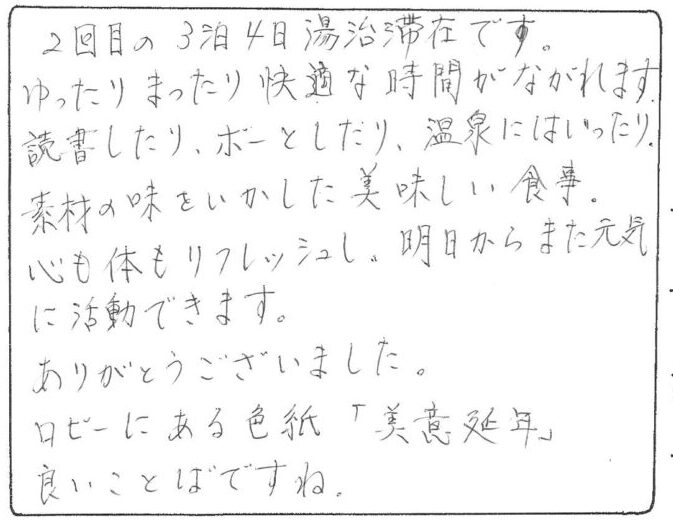 2回目の3泊4日湯治滞在です。
ゆったりまったり快適な時間がながれます。
読書したり、ボーとしたり、温泉にはいったり。
素材の味をいかした美味しい食事。
心も体もリフレッシュし、明日からまた元気
に活動できます。
ありがとうございました。
ロビーにある色紙「美意延年」
良いことばですね。